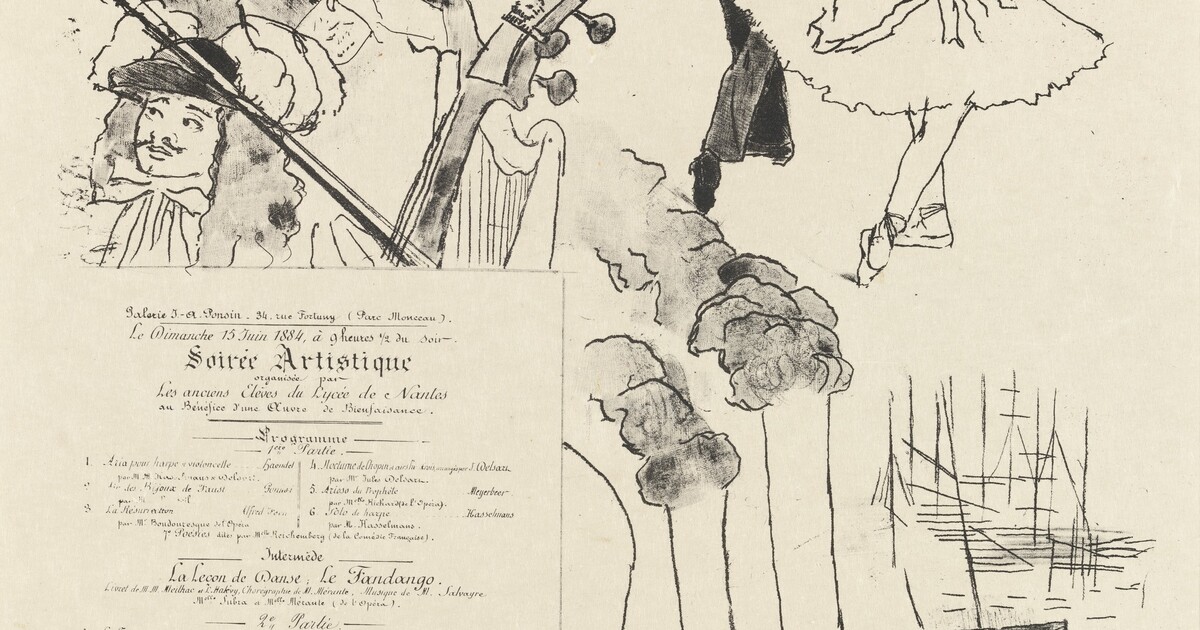 Galerie J.-A. Ponsin - 34, rue Fortuny (Parc Monceau).
Le Dimanche 15 Juin 1884, à 9 heures ½ du soir.
Soirée Artistique
organisée par
Les anciens Elèves du Lycée de Nantes
au Bénéfice d'une Œuvre de Bienfaisance.
Programme
1ère Partie.
1. Aria pour harpe & violoncelle Haendel
par M.M.
des Bijoux de Faust Gounod
par
3. La Résurrection Alfred
par Mr Boudouresque de l'Opéra
4. Nocturne de Chopin par J. Delsart.
par Mr Jules Delsart.
5. Arioso du Prophète Meyerbeer
par Melle Richard (de l'Opéra).
6. Solo de harpe Hasselmans
par M. Hasselmans.
7e Poésies dites par Melle Reichemberg (de la Comédie Française).
Intermède
La Leçon de Danse; Le Fandango.
Livret de M.M. Meilhac et L. Halévy, Chorégraphie de M. Mérante, Musique de M. Salvayre
Melle Subra & M. Mérante (de l'Opéra).
2e Partie.